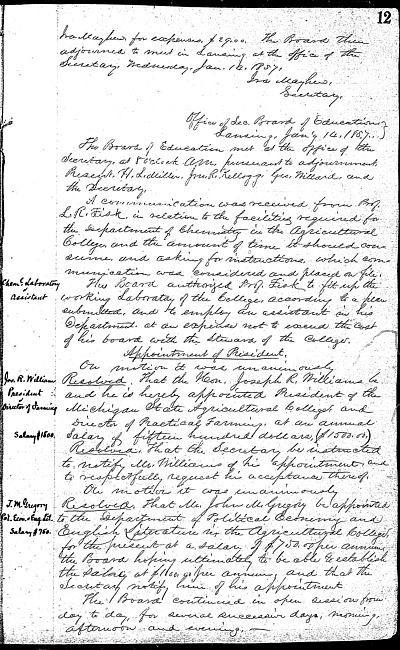 12
Ira Mayhew for expenses, $29.00. The Board then
adjourned to meet in Lansing at the office of the
Secretary Wednesday, Jan. 14. 1857.
Ira Mayhew,
Secretary.
Office of Sec. Board of Education }
Lansing, Jan'y 14. 1857. }
The Board of Education met at the office of the
Secretary, at 8 o'clock A.M. pursuant to adjournment.
Present, H. L. Miller, Jno. R. Kellogg, Geo. Willard, and
the Secretary.
A communication was received from Prof.
L. R. Fisk, in relation to the facilities required for
the Department of Chemistry in the Agricultural
College and the amount of time it should con
sume, and asking for instructions, which com
munication was considered and placed on file.
Chem'l Laboratory
Assistant
The Board authorized Prof. Fisk to fit up the
working Laboratory of the College, according to a plan
submitted, and to employ an assistant in his
Department at an expense not to exceed the cost
of his board with the Steward of the College.
Appointment of President.
On motion it was unanimously
Jos. R. Williams
President
Director of Farming
Salary $1500.
Resolved, That the Hon. Joseph R. Williams be
and he is hereby appointed President of the
Michigan State Agricultural College and
Director of Practical Farming, at an annual
Salary of fifteen hundred dollars, ($1500.00)
Resolved, That the Secretary be instructed
to notify Mr. Williams of his appointment and
to respectfully request his acceptance thereof.
On motion it was unanimously
J. M. Gregory
Pol. Econ. & Eng. Lit.
Salary $750.
Resolved, That Mr. John M. Gregory be appointed
to the Department of Political Economy and
English Literature in the Agricultural College
for the present at a salary of $750.00 per annum,
the Board hoping ultimately to be able to establish
the salary at per annum, and that the
Secretary notify him of his appointment
The Board continued in open session from
day to day, for several successive days, morning,
afternoon and evening.—